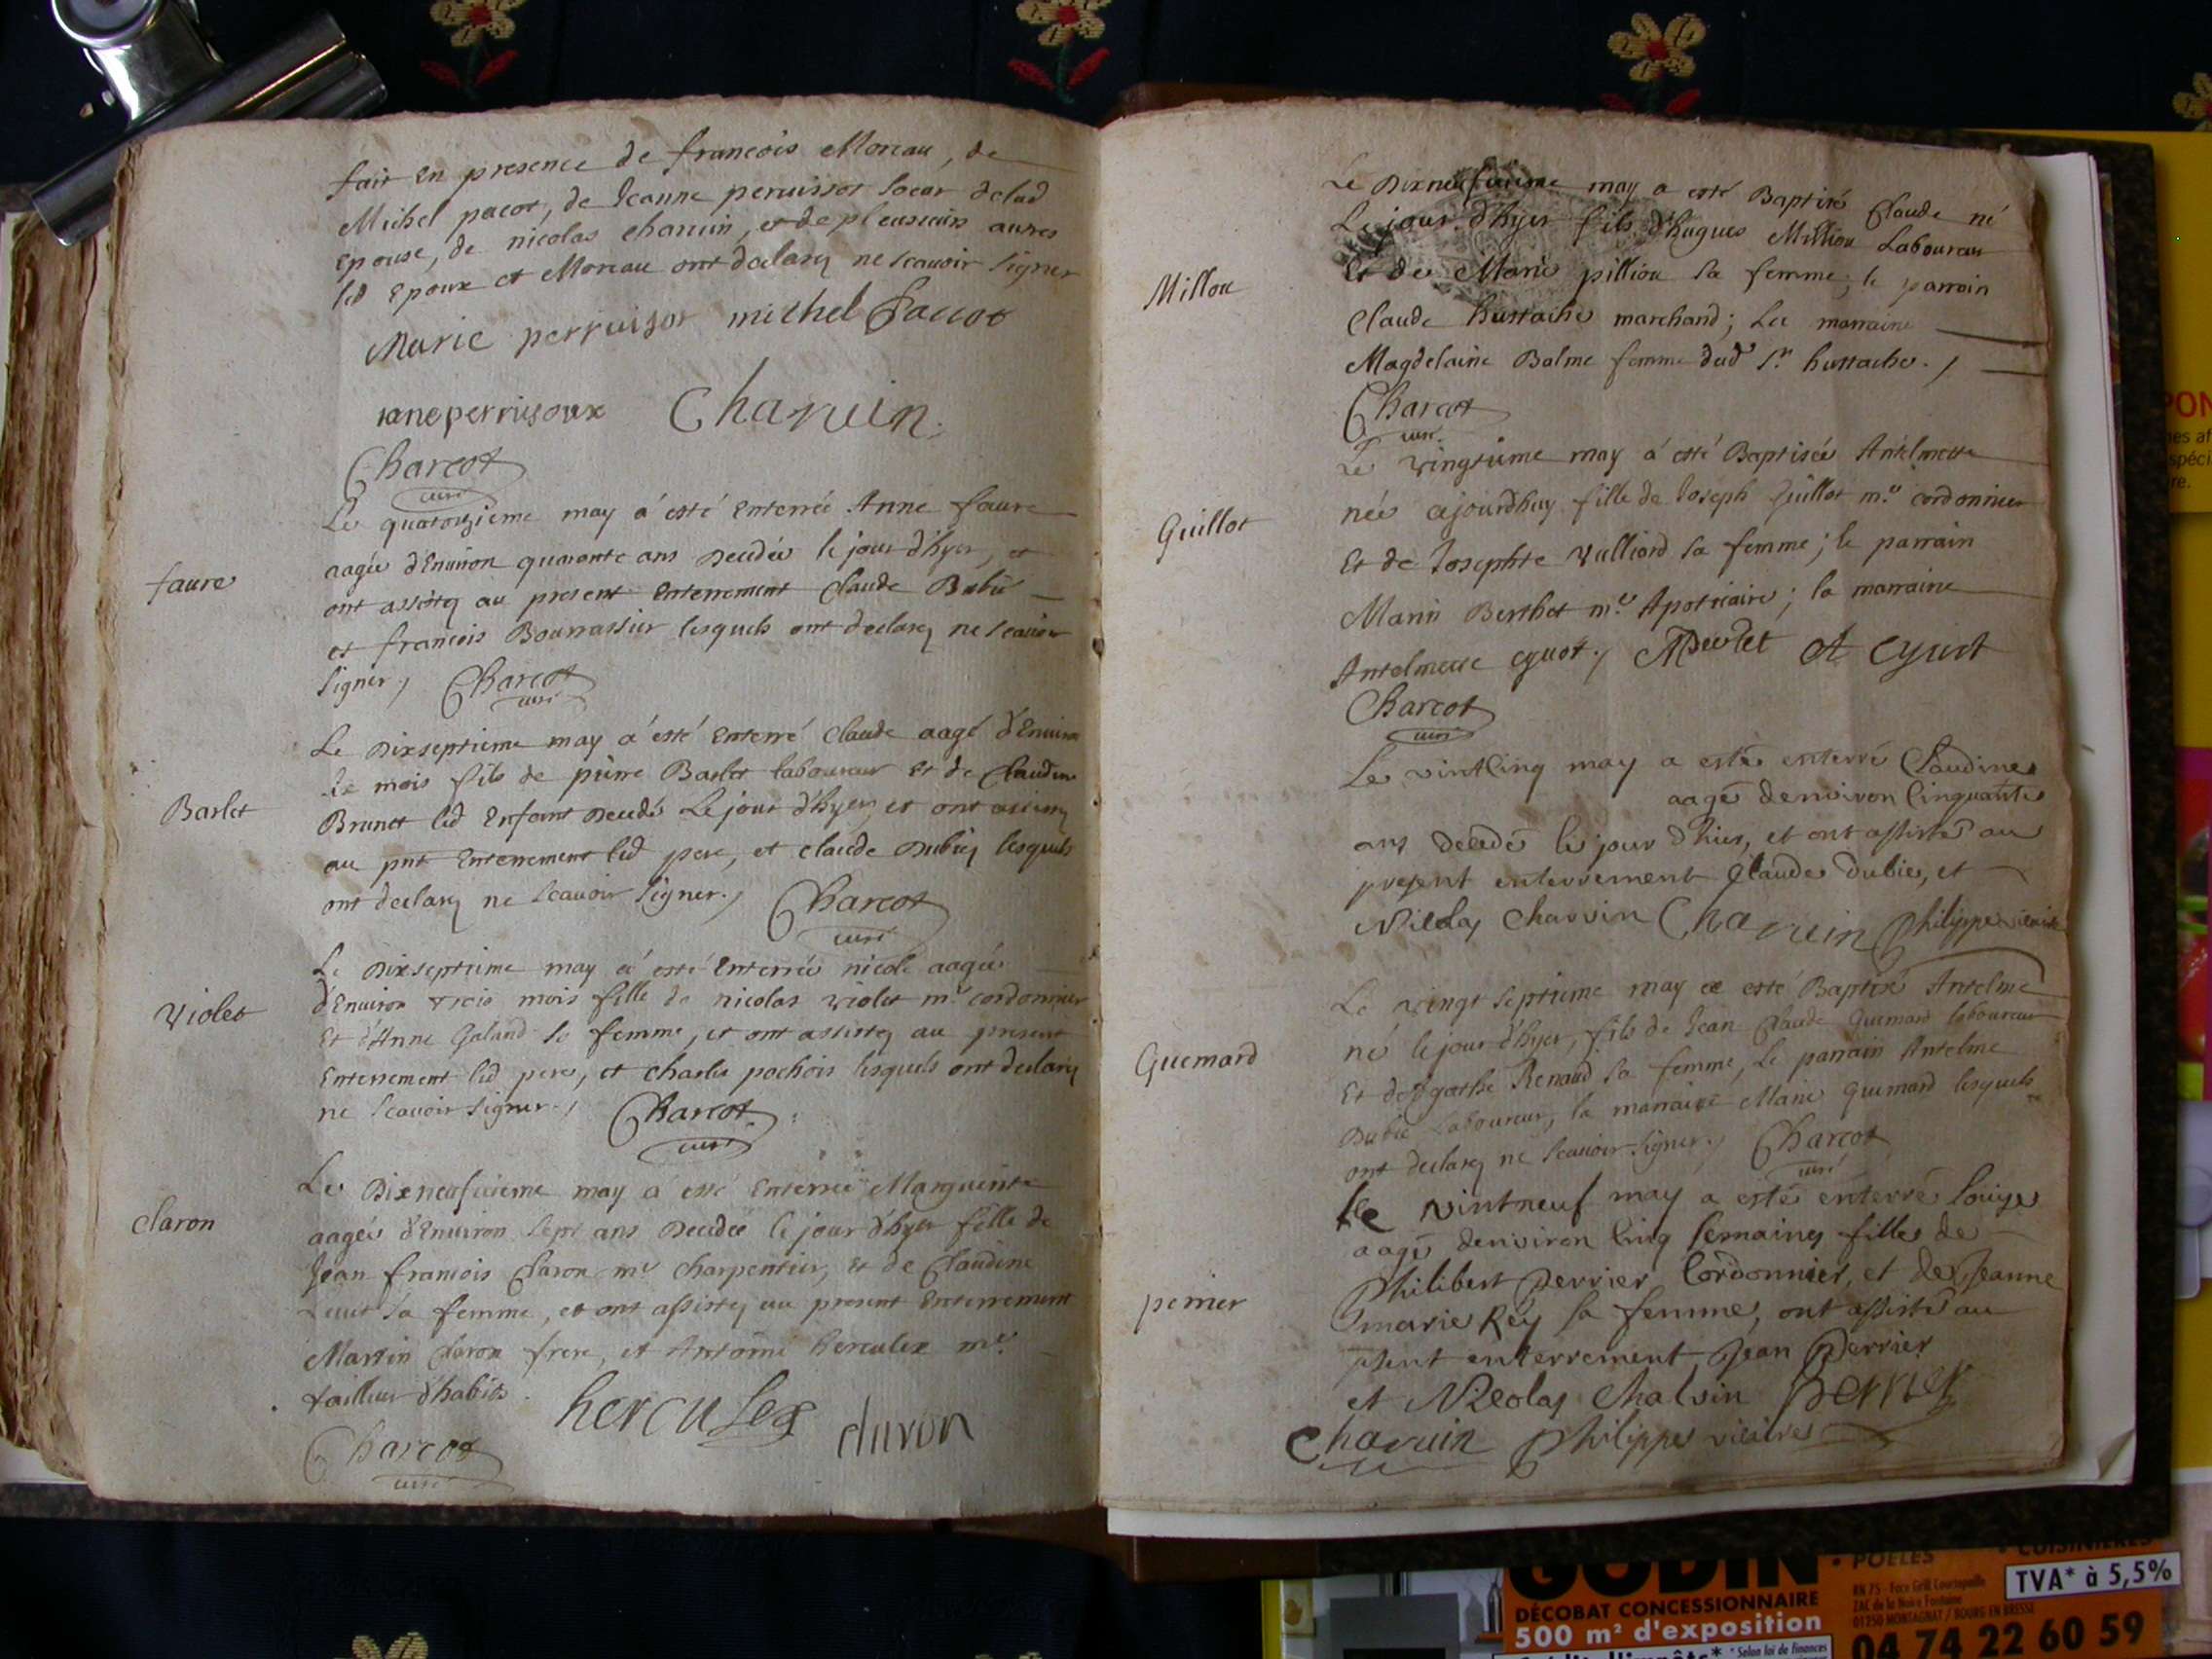 fait En presence de francois Moreau, de
Michel pacot, de Jeanne peruissot soeur delad
Epouse, de nicolas charuin, et de plusieurs autres
led Epoux et Moreau ont declarez ne scauoir signer
Marie perruisot michel Paccot
iane perrusoux Charuin
Charcot
curé
Le quatorzieme may á esté Enterrée Anne faure
faure
aagée d'Enuiron quarante ans Decedée le jour d'hyer, et
ont assistez au present Enterrement Claude Dubié
et francois Bourrassier lesquels ont declarez ne scauoir
signer./ Charcot
curé
Le Dixseptieme may á esté Enterré Claude aagé d'Enuiron
mois fils de pierre Barlet laboureur Et de Claudine
Barlet
Brunet led Enfant Decedé Le jour d'hyer, et ont assistez
au pnt Enterrement led pere, et claude Dubiez lesquels
ont declarez ne scauoir signer./ Charcot
curé
Le Dixseptieme may á esté Enterrée nicole aagée
Violet
d'Enuiron trois mois fille de nicolas violet me cordonnier
Et d'Anne Galand sa femme, et ont assistez au present
Enterrement led pere, et charles pochois lesquels ont declarez
ne scauoir signer./ Charcot
curé
Le Dixneufuieme may á esté Enterrée Marguerite
Claron
aagée d'Enuiron sept ans Decedée le jour d'hyer fille de
Jean francois Claron me charpentier, Et de Claudine
sa femme, et ont assistez au present Enterrement
Martin Claron frere, et Antoine herculex me
tailleur d'habits.
herculex claron
Charcot
curé
Le Dixneufuieme may a esté Baptisé Claude né
Le jour d'hyer fils d'hugues Milliou Laboureur
Milliou
Et de Marie pilliou sa femme; le parrain
Claude hustache marchand; La marraine
Magdelaine Balme femme dud Sr hustache./
Charcot
curé
Le vingtieme may á esté Baptisée Antelmette
Guillot
née ajourdhuy fille de Joseph Guillot me cordonnier
Et de Josephte Vulliard sa femme; le parrain
Marin Berthet me Apoticaire; la marraine
Antelmette cyuot./ A cyuot
Charcot
curé
Le vintcinq may a esté enterré Claudine
aagé denviron cinquante
ans decedé le jour dhier, et ont assisté au
present enterrement Claude Dubie, et
Nicolas Charvin Charuin Philippe vicaire
Le vingt septieme may a esté Baptisé Antelme
né le jour d'hyer, fils de Jean Claude Guemard laboureur
Guemard
Et d'Agathe Renaud sa femme, Le parrain Antelme
Dubié Laboureur, la marraine Marie Guemard lesquels
ont declarez ne scauoir signer./ Charcot
curé
le vintneuf may a esté enterré louise
aagé denviron cinq semaines fille de
perrier
Philibert Perrier Cordonnier, et de Jeanne
marie Rey sa femme, ont assisté au
psent enterrement Jean Perrier
et Nicolas Chalvin Perrier
Charuin Philippe vicaire
GODIN
• POELES
DÉCOBAT CONCESSIONNAIRE
500 m² d'exposition
RN 75 -
01250 MONTAGNAT / BOURG EN BRESSE
TVA* à 5,5%
* Selon loi de finances
04 74 22 60 59